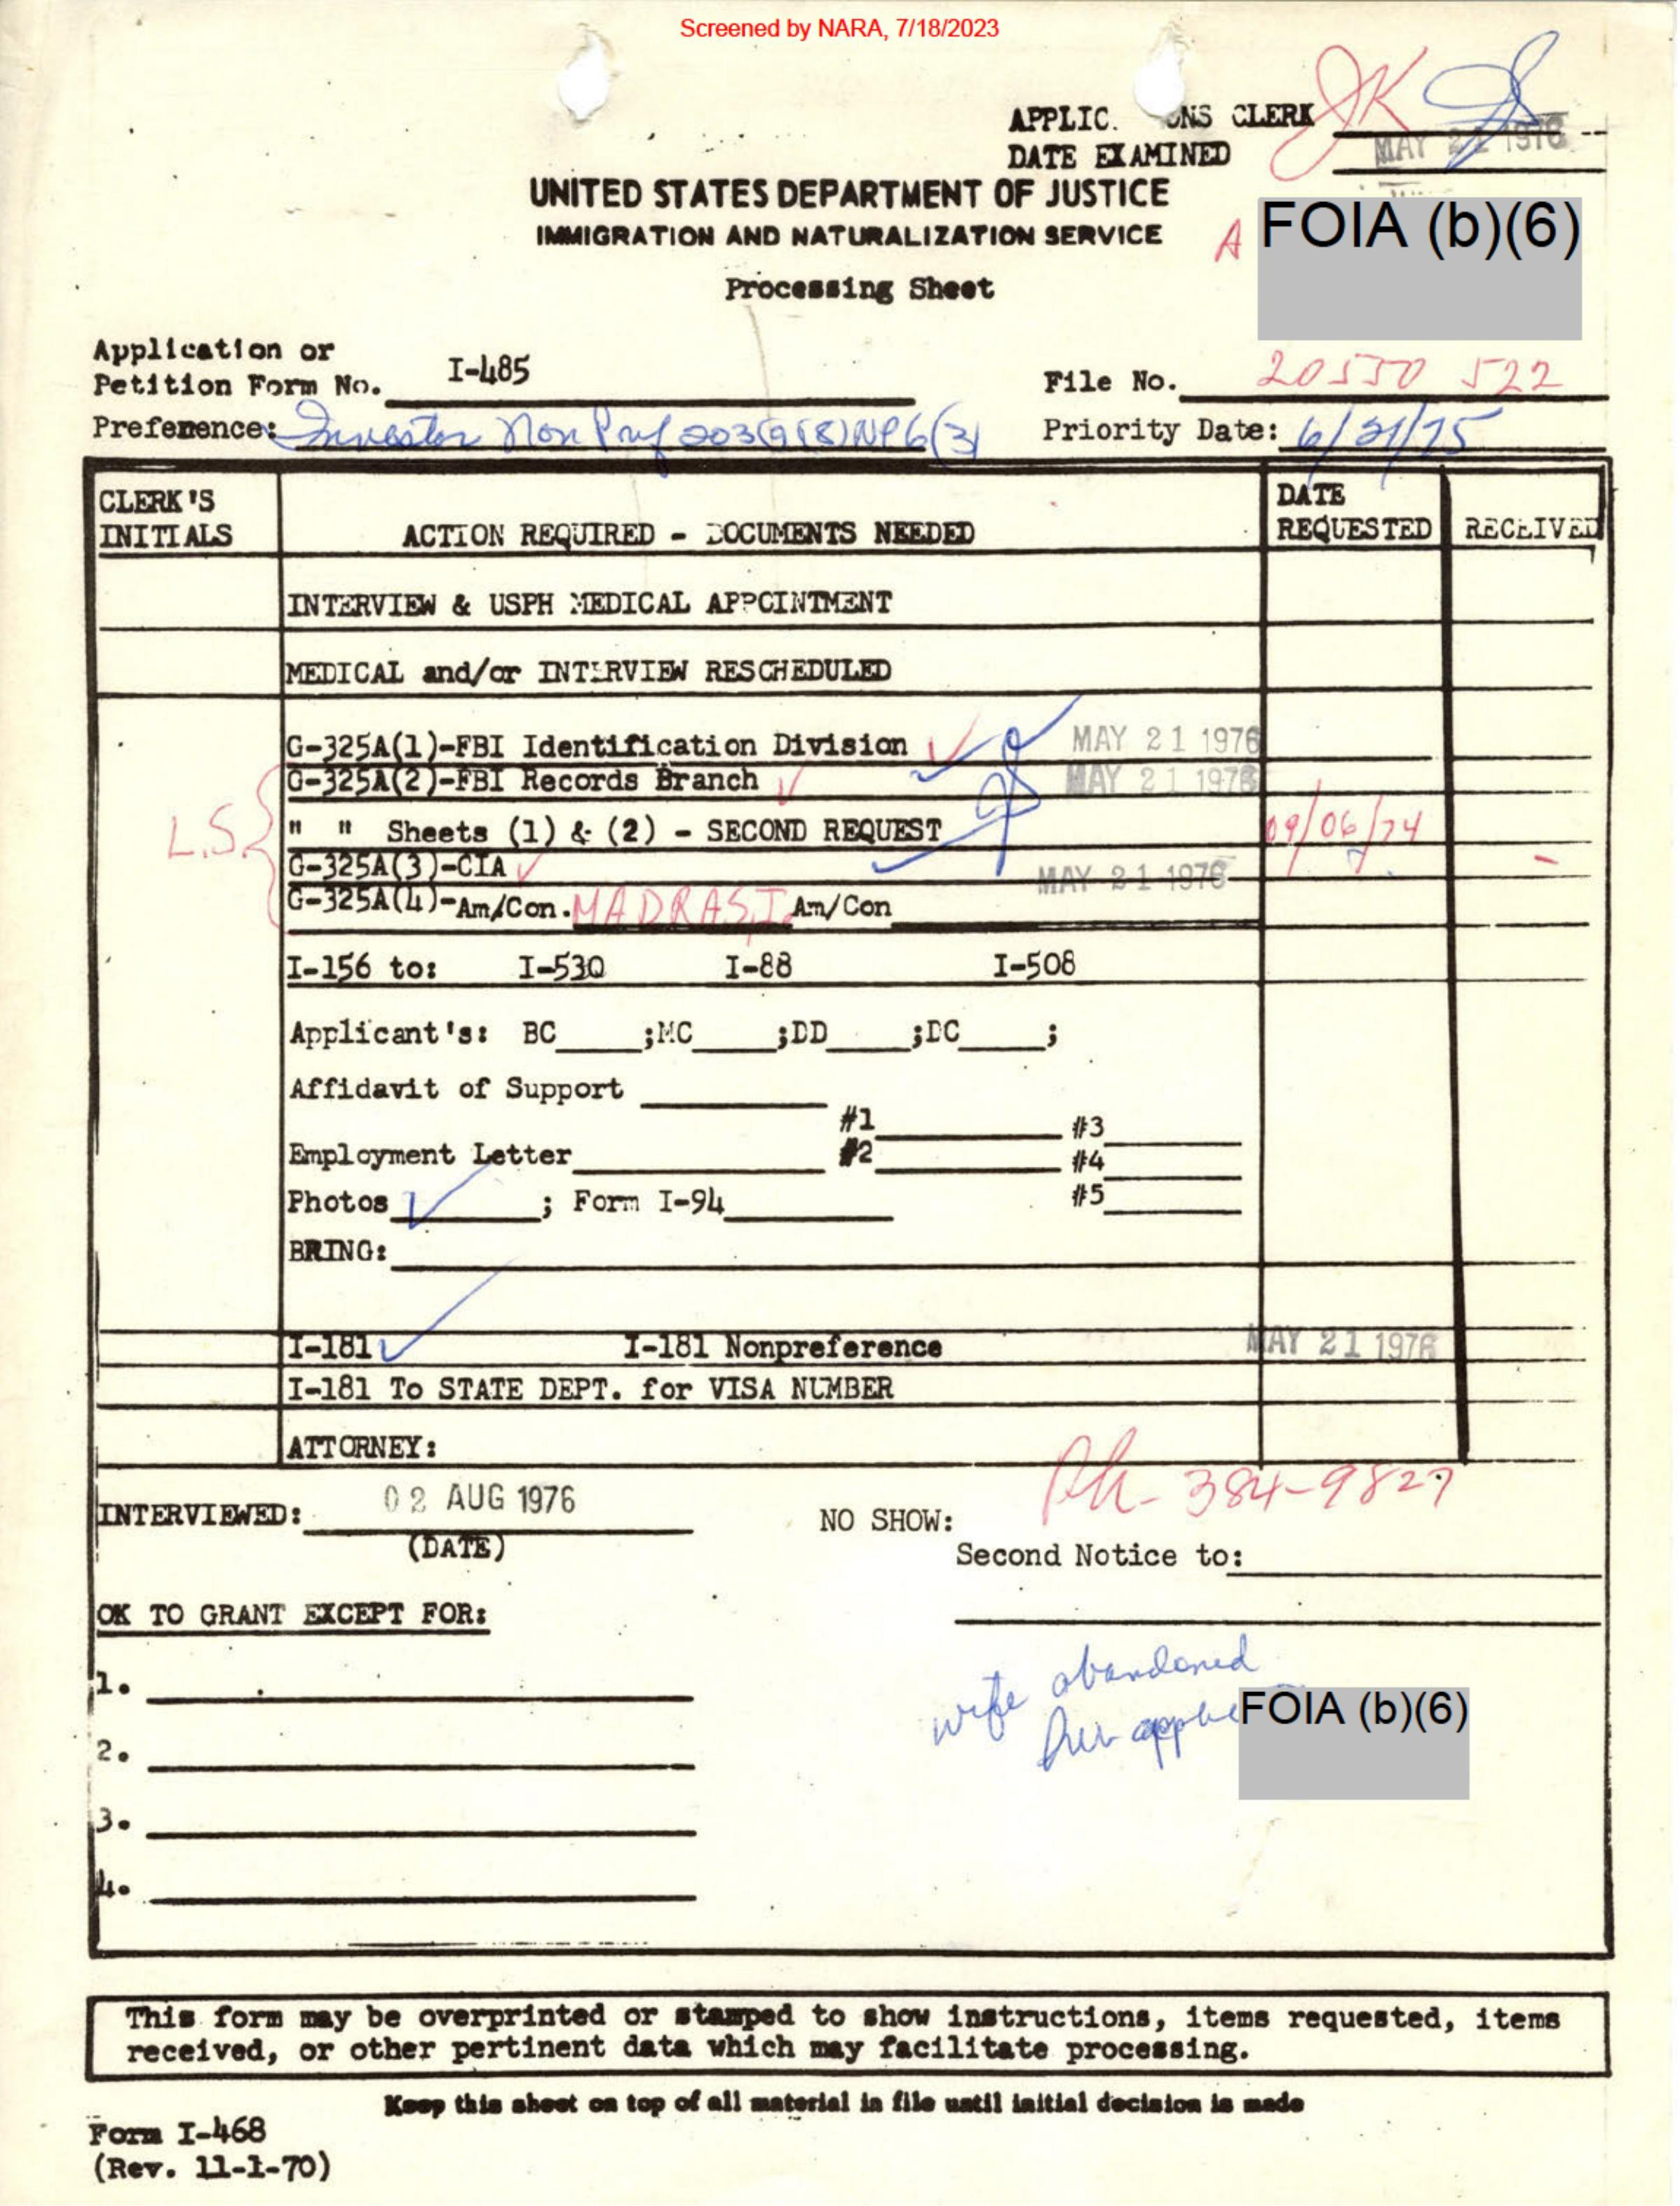 Screened by NARA, 7/18/2023
JK
APPLIC. ONS CLERK
MAY 21 1976
DATE EXAMINED
UNITED STATES DEPARTMENT OF JUSTICE
IMMIGRATION AND NATURALIZATION SERVICE
A FOIA (b)(6)
Processing Sheet
Application or
Petition Form No. I-485
File No. 20550 522
Preference: Investor Non Pref 203(a)(8)NP6(3)
Priority Date: 6/21/75
CLERK'S INITIALS
ACTION REQUIRED - DOCUMENTS NEEDED
DATE REQUESTED
RECEIVED
INTERVIEW & USPH MEDICAL APPOINTMENT
MEDICAL and/or INTERVIEW RESCHEDULED
G-325A(1)-FBI Identification Division MAY 21 1976
G-325A(2)-FBI Records Branch MAY 21 1976
L.S.
" " Sheets (1) & (2) - SECOND REQUEST 09/06/74
G-325A(3)-CIA MAY 21 1976
G-325A(4)-Am/Con. MADRAS, I. Am/Con
I-156 to: I-530 I-88 I-508
Applicant's: BC ;MC ;DD ;DC ;
Affidavit of Support
#1 #3
Employment Letter #2 #4
Photos ; Form I-94 #5
BRING:
I-181 I-181 Nonpreference MAY 21 1976
I-181 To STATE DEPT. for VISA NUMBER
ATTORNEY:
Ph- 384-9827
INTERVIEWED: 02 AUG 1976
NO SHOW:
(DATE)
Second Notice to:
OK TO GRANT EXCEPT FOR:
wife abandoned
her FOIA (b)(6)
1.
2.
3.
4.
This form may be overprinted or stamped to show instructions, items requested, items
received, or other pertinent data which may facilitate processing.
Keep this sheet on top of all material in file until initial decision is made
Form I-468
(Rev. 11-1-70)